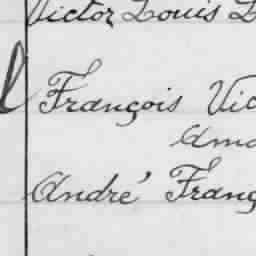 Victor Louis
François Vic
Ama
André Franç